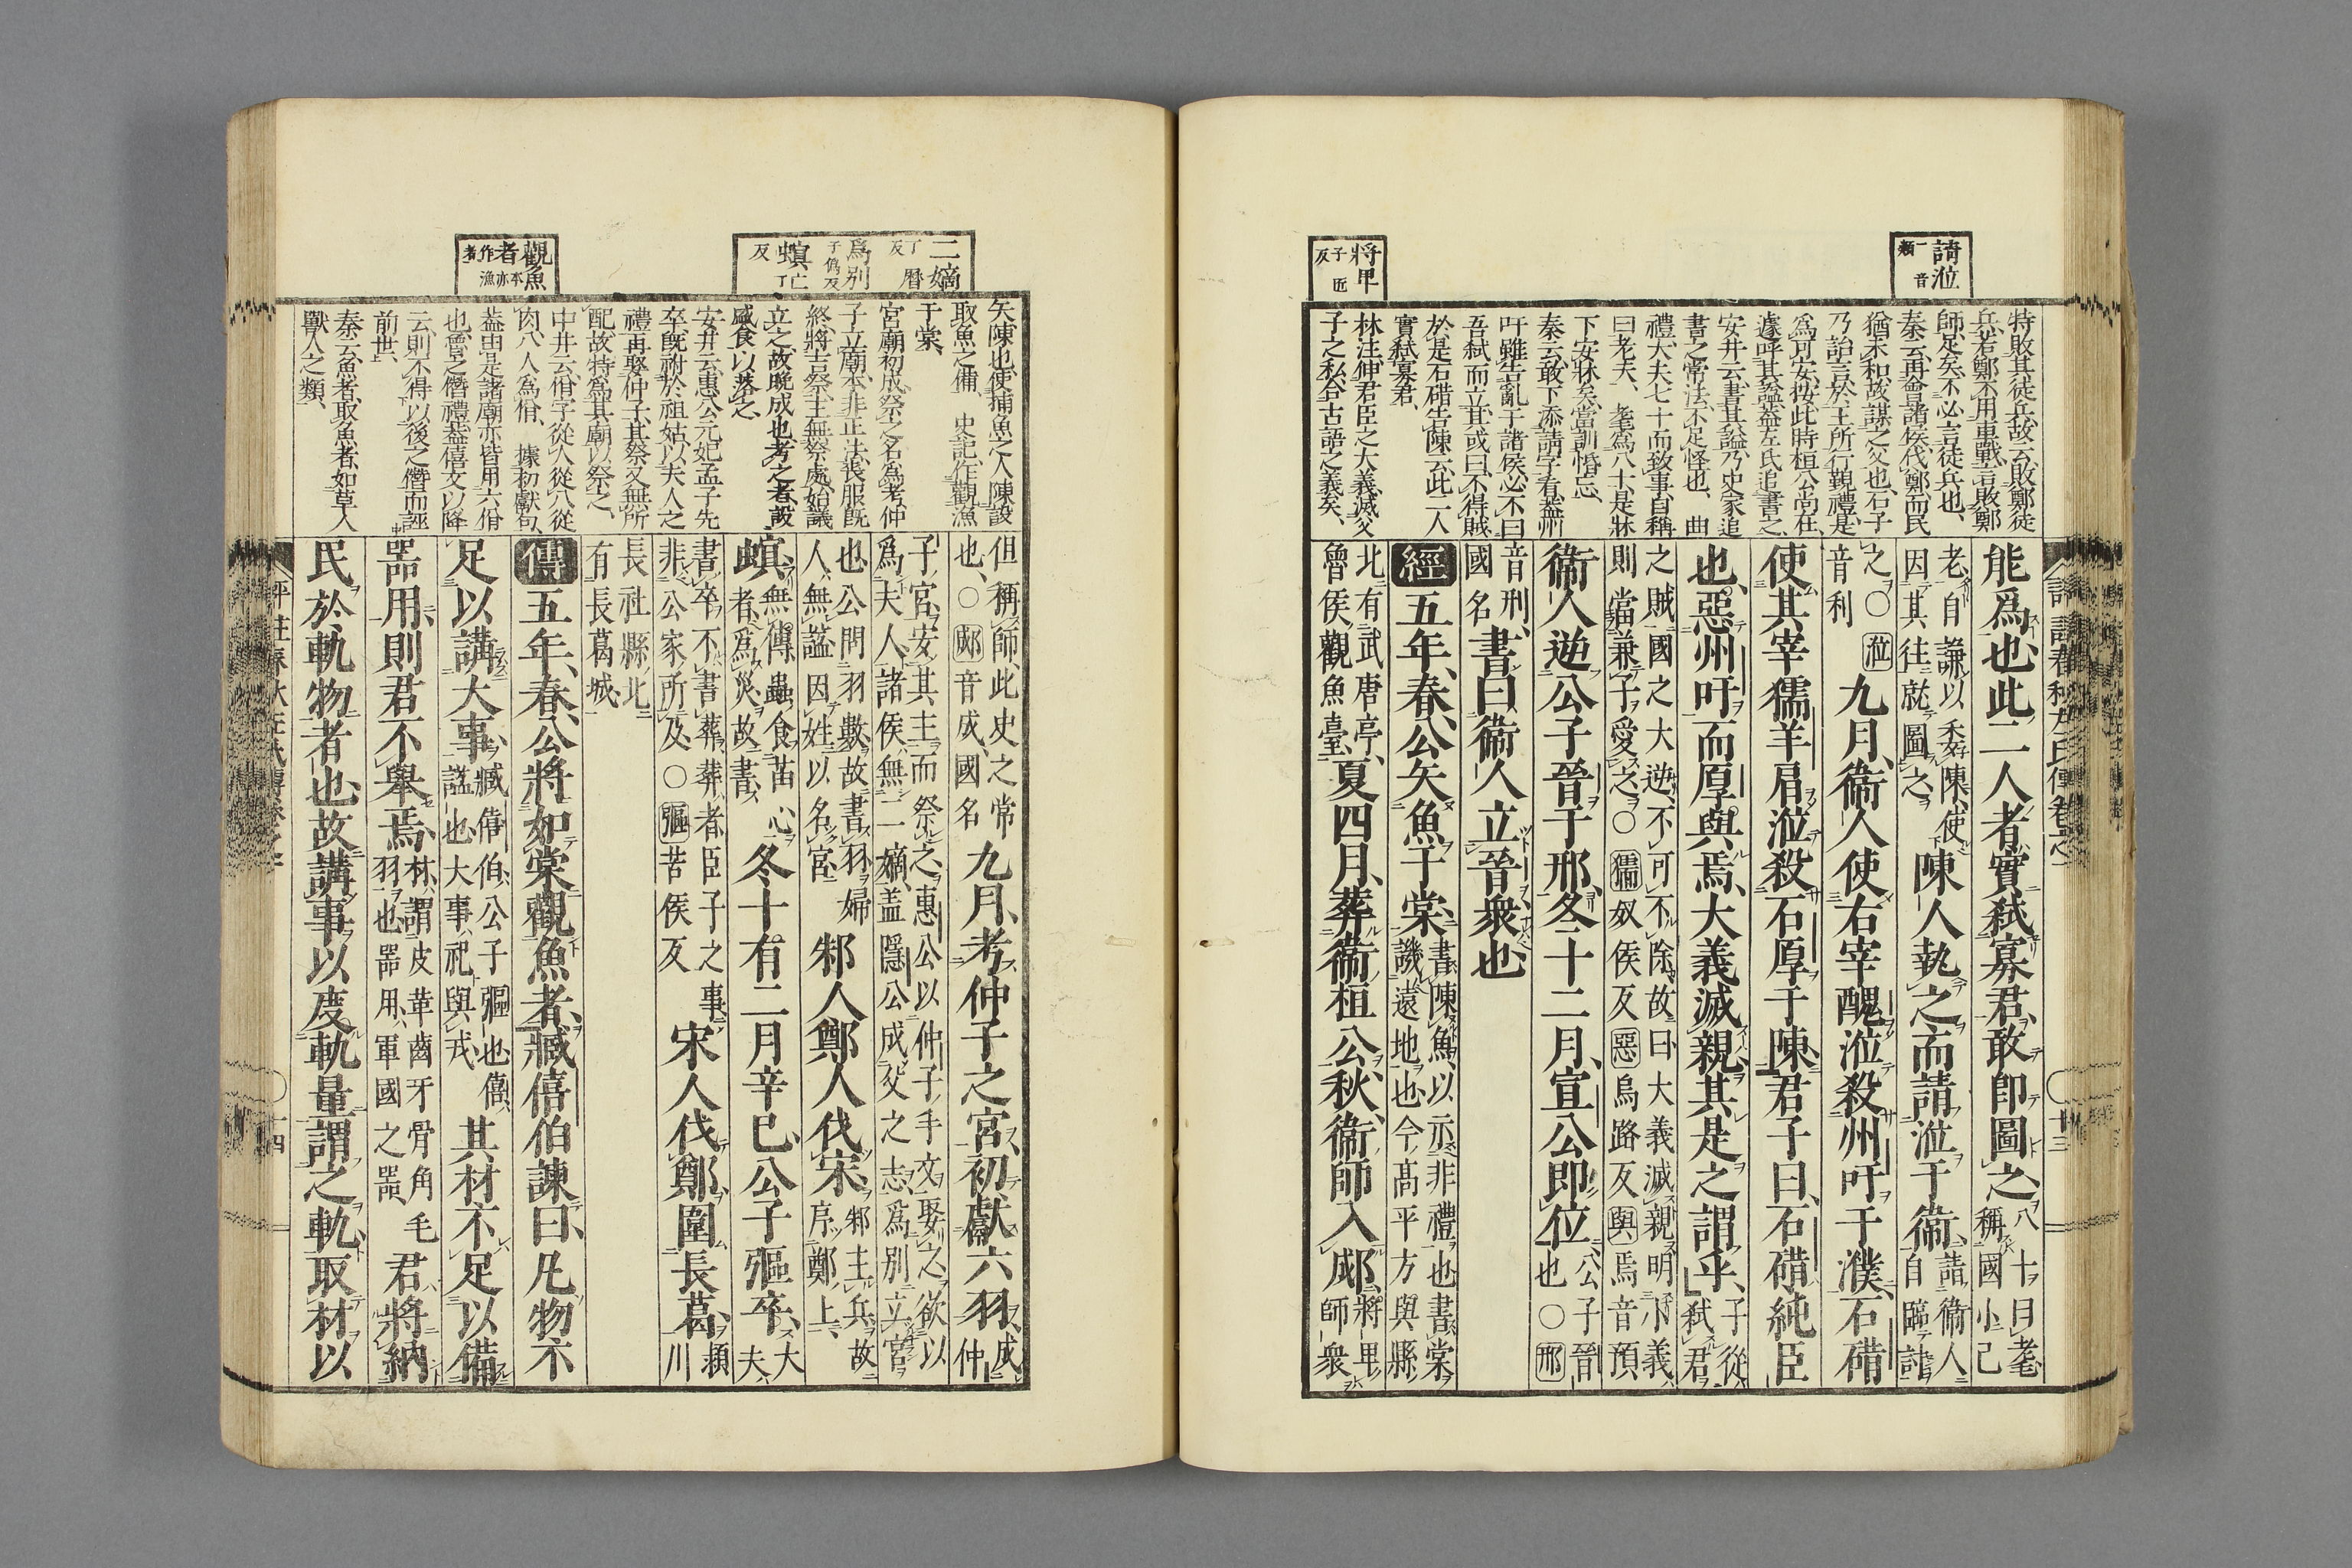 請涖
一音類
將甲
子匠反
特敗其徒兵、故云敗鄭徒
兵、若鄭不用車戰、言敗鄭
師足矣、不必言徒兵也、
秦云、再會諸侯、伐鄭而民
猶未和、故謀之父也、石子
乃詒言於王所、行覲禮、是
爲可安、按此時桓公尚在、
遽呼其謚、蓋左氏追書之、
安井云、書其謚、乃史家追
書之常法、不足怪也、曲
禮大夫七十而致事、自稱
曰老夫、耄爲八十、是牀
下安牀矣、當訓惛忘、
秦云、敢下添請字看、蓋州
吁雖告亂于諸侯、必不曰
吾弒而立、其或曰、不得賊、
於是石碏告陳云、此二人
實弒寡君、
林注伸君臣之大義、滅父
子之私、合古語之義矣、
能爲也、此二人者、實弒寡君、敢卽圖之、八十曰耄、稱國小己
老自謙以委陳、使因其往就圖之、陳人執之、而請涖于衞、請衞人自臨討
之、○涖音利 九月、衞人使右宰醜涖殺州吁于濮、石碏
使其宰獳羊肩涖殺石厚于陳、君子曰、石碏純臣
也、惡州吁而厚與焉、大義滅親、其是之謂乎、子從弒君
之賊國之大逆、不可不除、故曰大義滅親、明小義則當兼子愛之、○獳奴侯反惡烏路反與焉音預
衞人逆公子晉于邢、冬十二月、宣公卽位、公子晉也○邢
音刑、國名 書曰衞人立晉、衆也
經五年、春、公矢魚于棠、書陳魚、以示非禮也書棠、譏遠地也、今高平方與縣
北有武唐亭、魯侯觀魚臺、夏四月、葬衞桓公、秋、衞師入郕、將卑師衆
二嫡
丁歷反
爲別
子僞反
螟
亡丁反
觀魚者
本亦作漁者
矢陳也、使捕魚之人陳設
取魚之備、史記作觀漁
于棠、
宮廟初成、祭之名爲考、仲
子立廟、本非正法、喪服旣
終、將吉祭、主無祭處、始議
立之、故晚成也、考之者、設
盛食以落之、
安井云、惠公元妃孟子先
卒、旣祔於祖姑、以夫人之
禮再娶仲子、其祭又無所
配、故特爲其廟以祭之、
中井云、佾字從人從八從
肉、八人爲佾、據初獻句、
蓋由是諸廟亦皆用六佾
也、魯之僭禮、蓋僖文以降
云、則不得以後之僭而誣
前世、
秦云、魚者、取魚者、如草人
獸人之類、
但稱師、此史之常也、○郕音成、國名 九月、考仲子之宮、初獻六羽、成仲
子宮、安其主而祭之、惠公以仲子手文娶之、欲以爲夫人、諸侯無二嫡、蓋隱公成父之志、爲別立宮
也、公問羽數、故書羽、婦人無謚、因姓以名宮 邾人鄭人伐宋、邾主兵、故序鄭上、
螟、無傳、蟲食苗心者、爲災、故書、冬十有二月辛巳、公子彄卒、大夫
書卒不書葬、葬者臣子之事、非公家所及、○彄苦侯反 宋人伐鄭圍長葛、潁川
長社縣北有長葛城
傳五年、春、公將如棠觀魚者、臧僖伯諫曰、凡物不
足以講大事、臧僖伯、公子彄也、僖、謚也大事、祀與戎 其材不足以備
器用、則君不舉焉、材、謂皮革齒牙骨角毛羽也器用、軍國之器 君將納
民於軌物者也、故講事以度軌量謂之軌、取材以